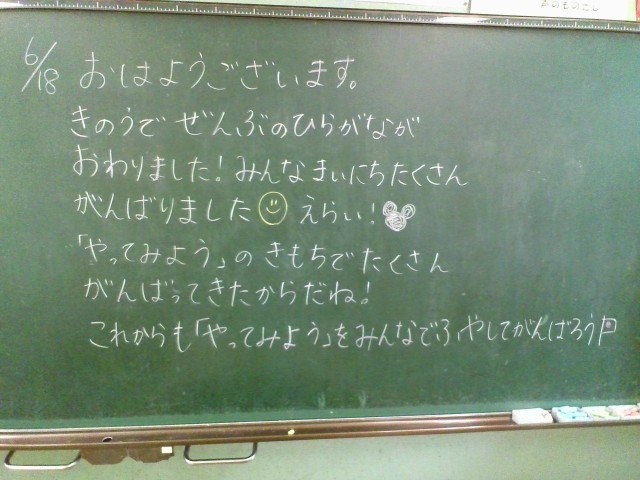 のものさし
6/18 おはようございます。
きのうで ぜんぶのひらがなが
おわりました！みんなまいにちたくさん
がんばりました えらい！
「やってみよう」の きもちで たくさん
がんばってきたからだね！
これからも「やってみよう」をみんなでふやしてがんばろう